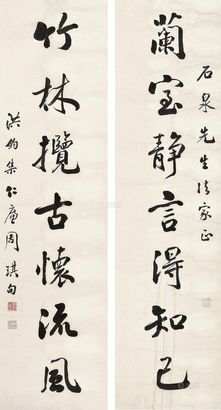 石泉先生法家正
蘭室静言得知己
竹林攬古懷流風
洪鈞集仁廬周琪句